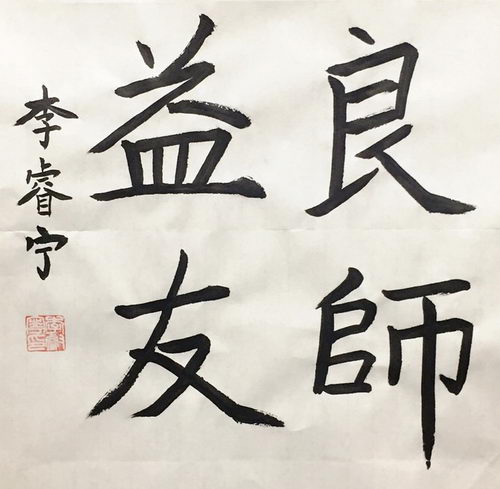 良師
益友
李睿宁